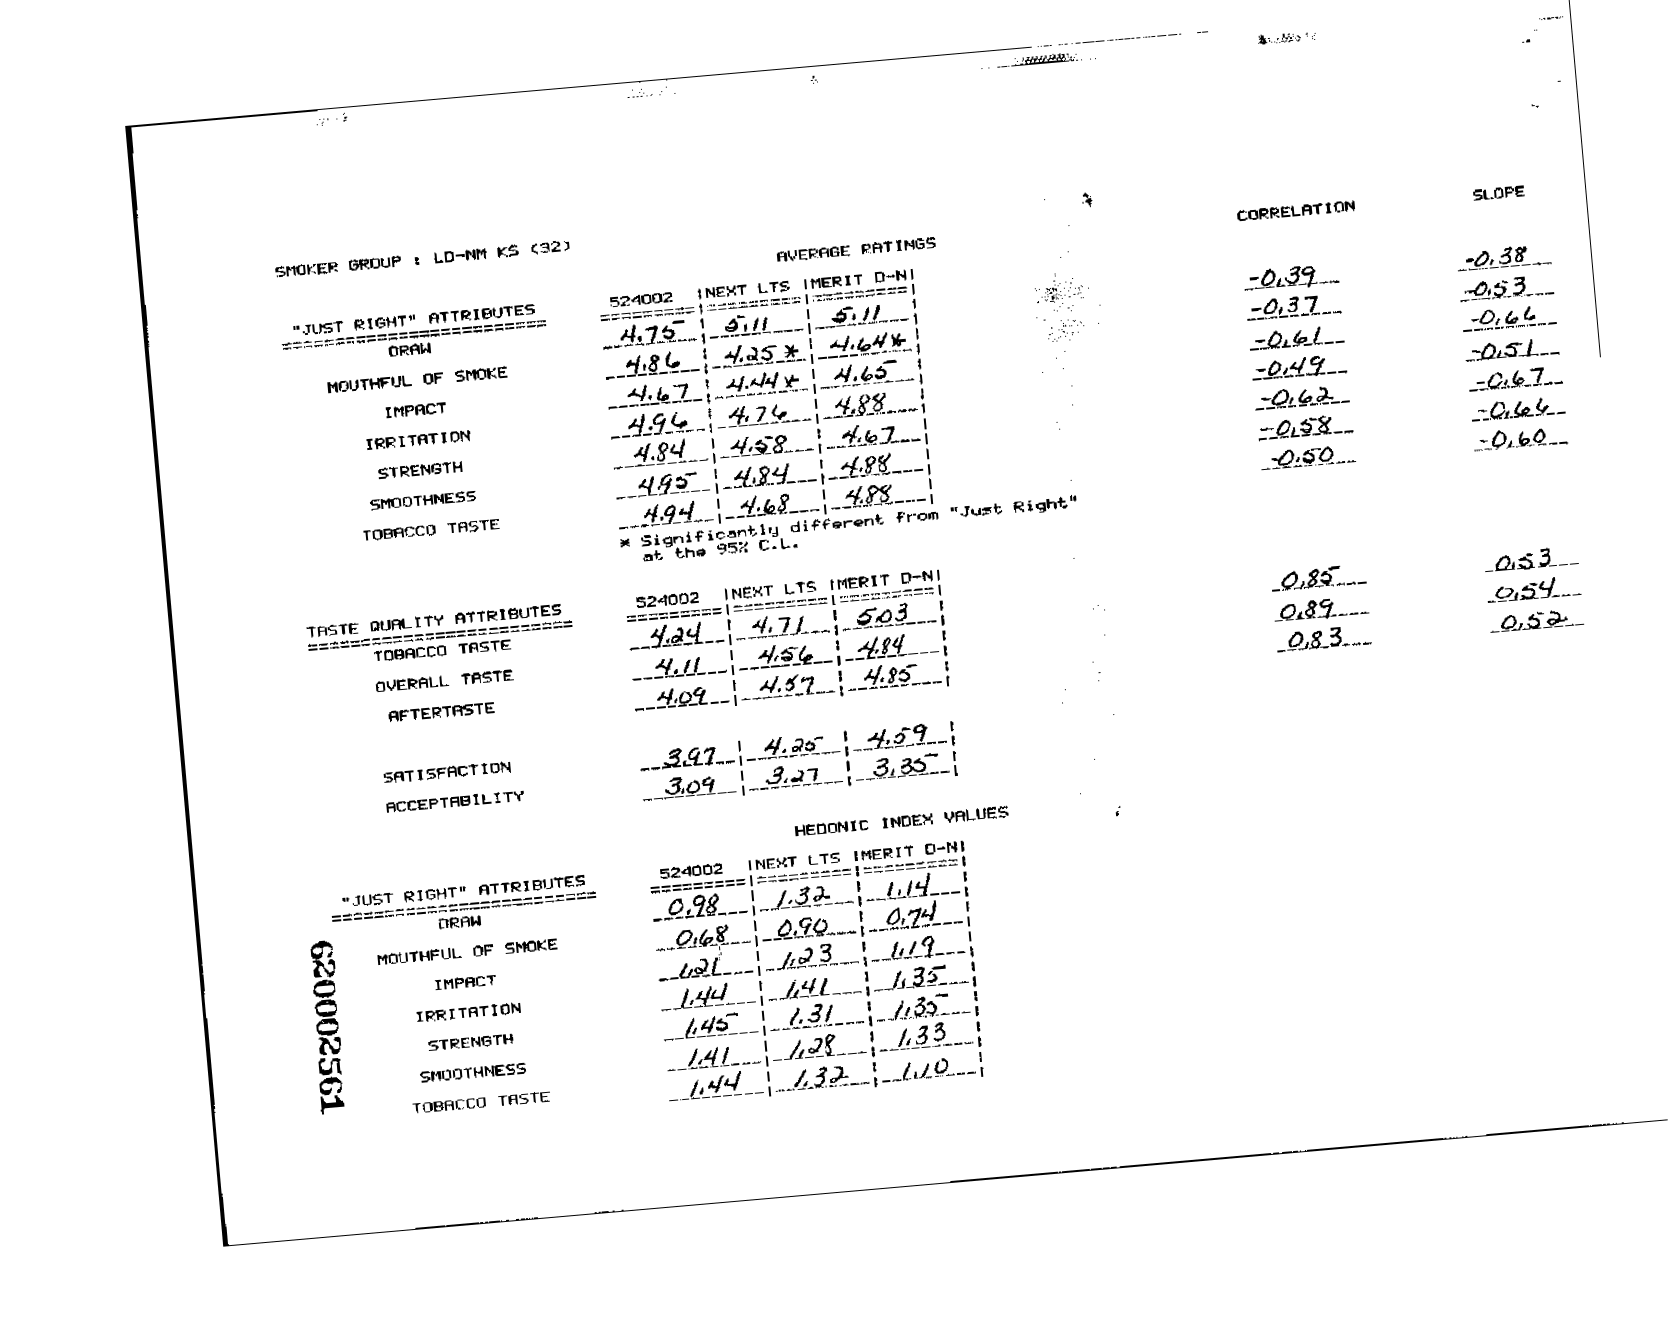 CORRELATION SLOPE
SMOKER GROUP : LD-NM KS (32)
AVERAGE RATINGS
"JUST RIGHT" ATTRIBUTES 524002 |NEXT LTS |MERIT D-N|
DRAW 4.75 5.11 5.11 -0.39 -0.38
MOUTHFUL OF SMOKE 4.86 4.25 * 4.64 * -0.37 -0.53
IMPACT 4.67 4.44 * 4.65 -0.61 -0.66
IRRITATION 4.96 4.76 4.88 -0.49 -0.51
STRENGTH 4.84 4.58 4.67 -0.62 -0.67
SMOOTHNESS 4.95 4.84 4.88 -0.58 -0.66
TOBACCO TASTE 4.94 4.68 4.88 -0.50 -0.60
* Significantly different from "Just Right"
at the 95% C.L.
TASTE QUALITY ATTRIBUTES 524002 |NEXT LTS |MERIT D-N|
TOBACCO TASTE 4.24 4.71 5.03 0.85 0.53
OVERALL TASTE 4.11 4.56 4.84 0.89 0.54
AFTERTASTE 4.09 4.57 4.85 0.83 0.52
SATISFACTION 3.97 4.25 4.59
ACCEPTABILITY 3.09 3.27 3.35
HEDONIC INDEX VALUES
"JUST RIGHT" ATTRIBUTES 524002 |NEXT LTS |MERIT D-N|
DRAW 0.98 1.32 1.14
MOUTHFUL OF SMOKE 0.68 0.90 0.74
IMPACT 1.21 1.23 1.19
IRRITATION 1.44 1.41 1.35
STRENGTH 1.45 1.31 1.35
SMOOTHNESS 1.41 1.28 1.33
TOBACCO TASTE 1.44 1.32 1.10
620002561